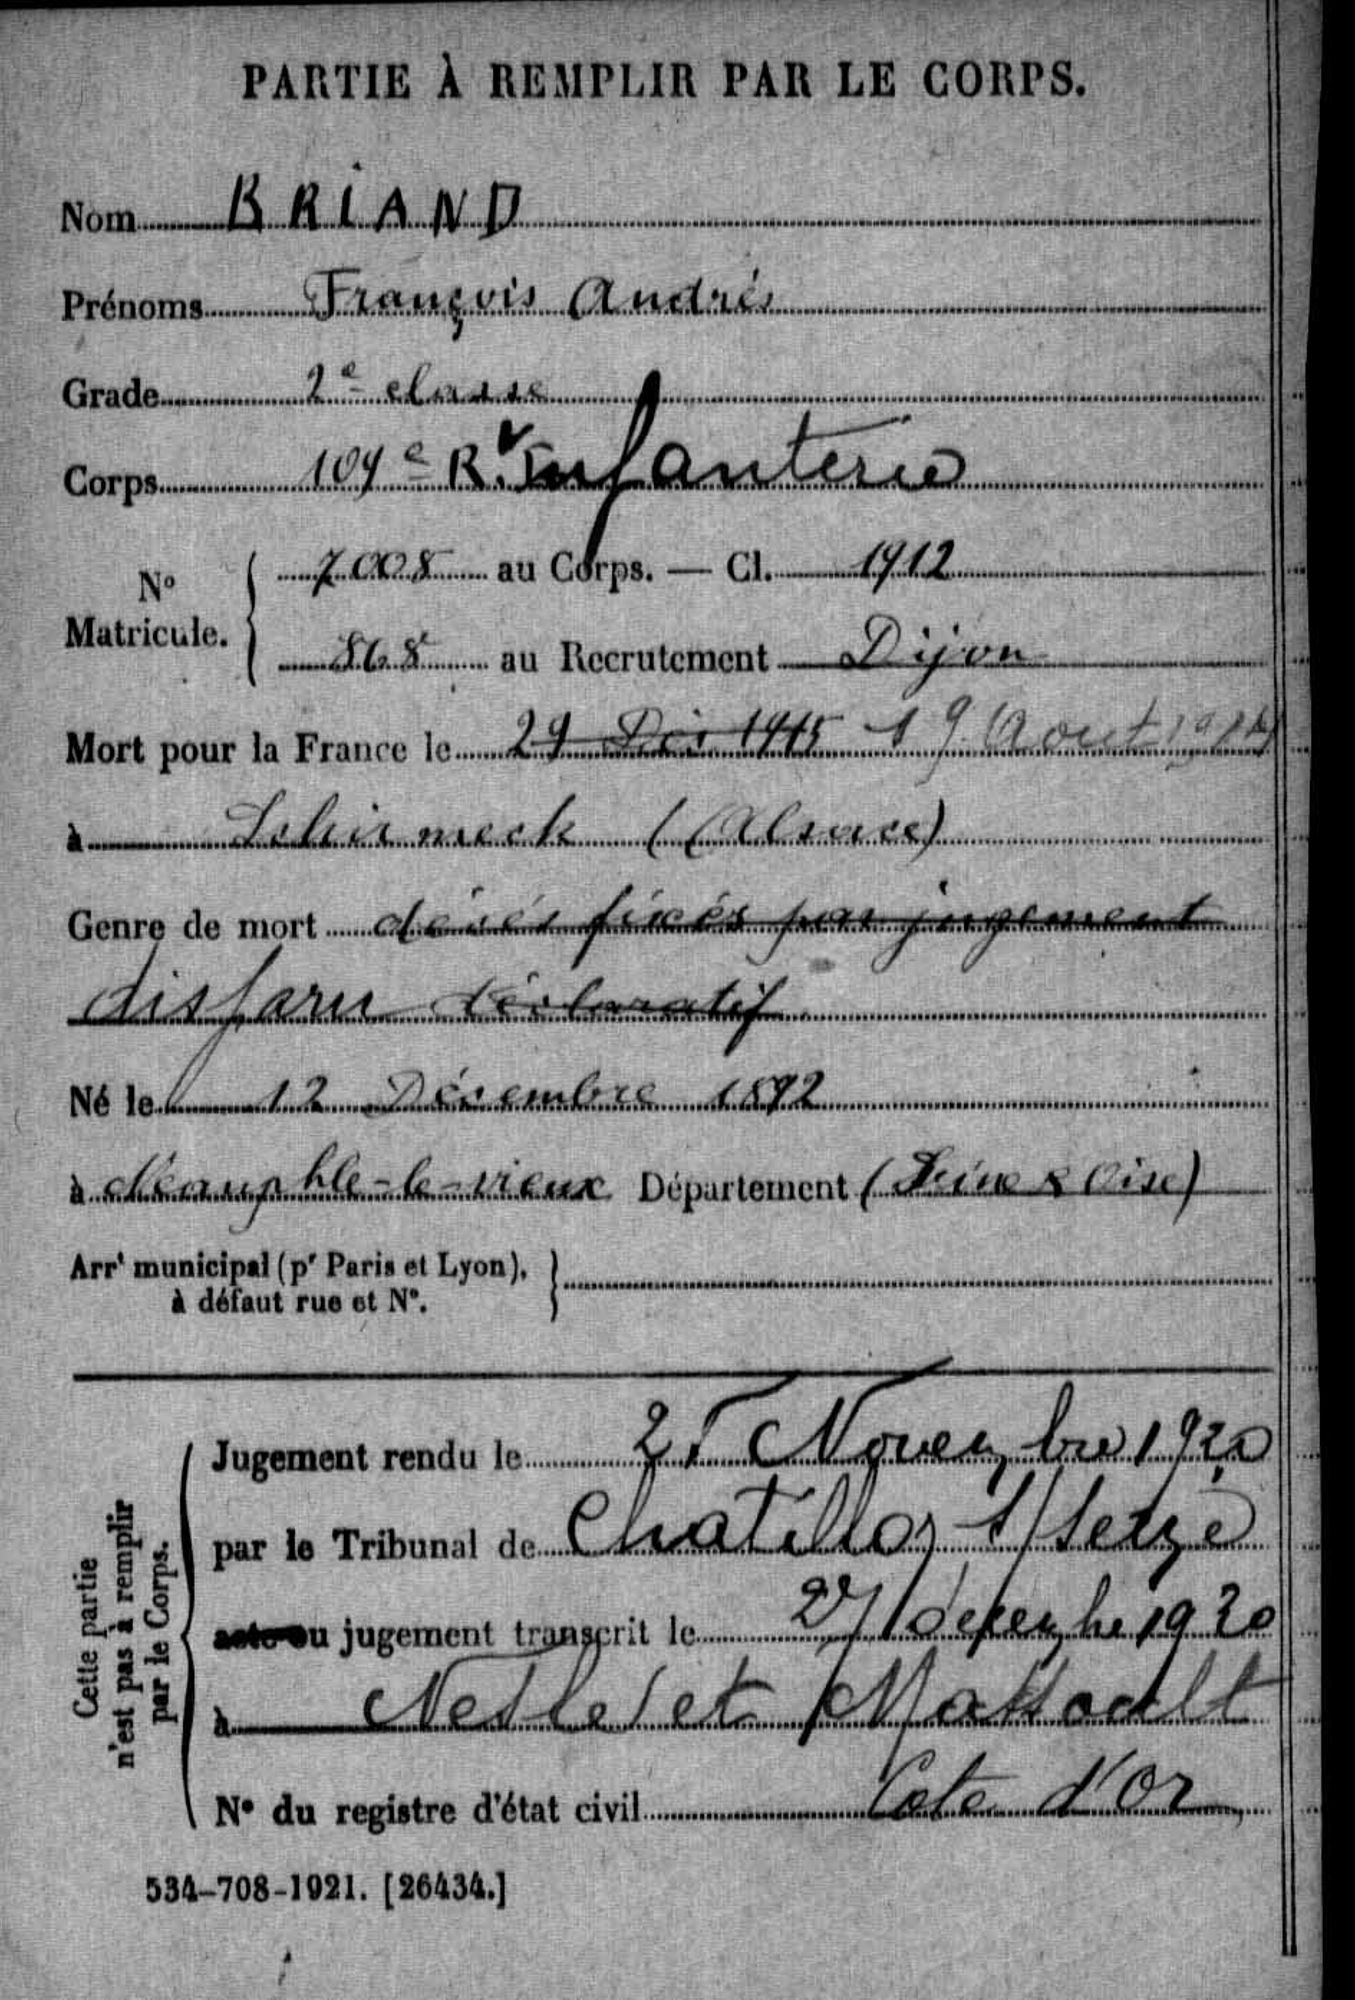 PARTIE À REMPLIR PAR LE CORPS.
Nom BRIAND
Prénoms François Andrés
Grade 2e classe
Corps 109e Rt Infanterie
No Matricule. 7008 au Corps. — Cl. 1912
868 au Recrutement Dijon
Mort pour la France le 29 Déc 1915 19 Aout 1914
à Schirmeck (Alsace)
Genre de mort décés fixés par jugement
disparu déclaratif
Né le 12 Décembre 1892
à Neauphle-le-vieux Département (Seine & Oise)
Arrt municipal (pr Paris et Lyon),
à défaut rue et No.
Cette partie n'est pas à remplir par le Corps.
Jugement rendu le Novembre 1920
par le Tribunal de Chatillon s/ Seine
acte ou jugement transcrit le 27 décembre 1920
à Nesle et Massoult
No du registre d'état civil Cote d'Or
534-708-1921. [26434.]